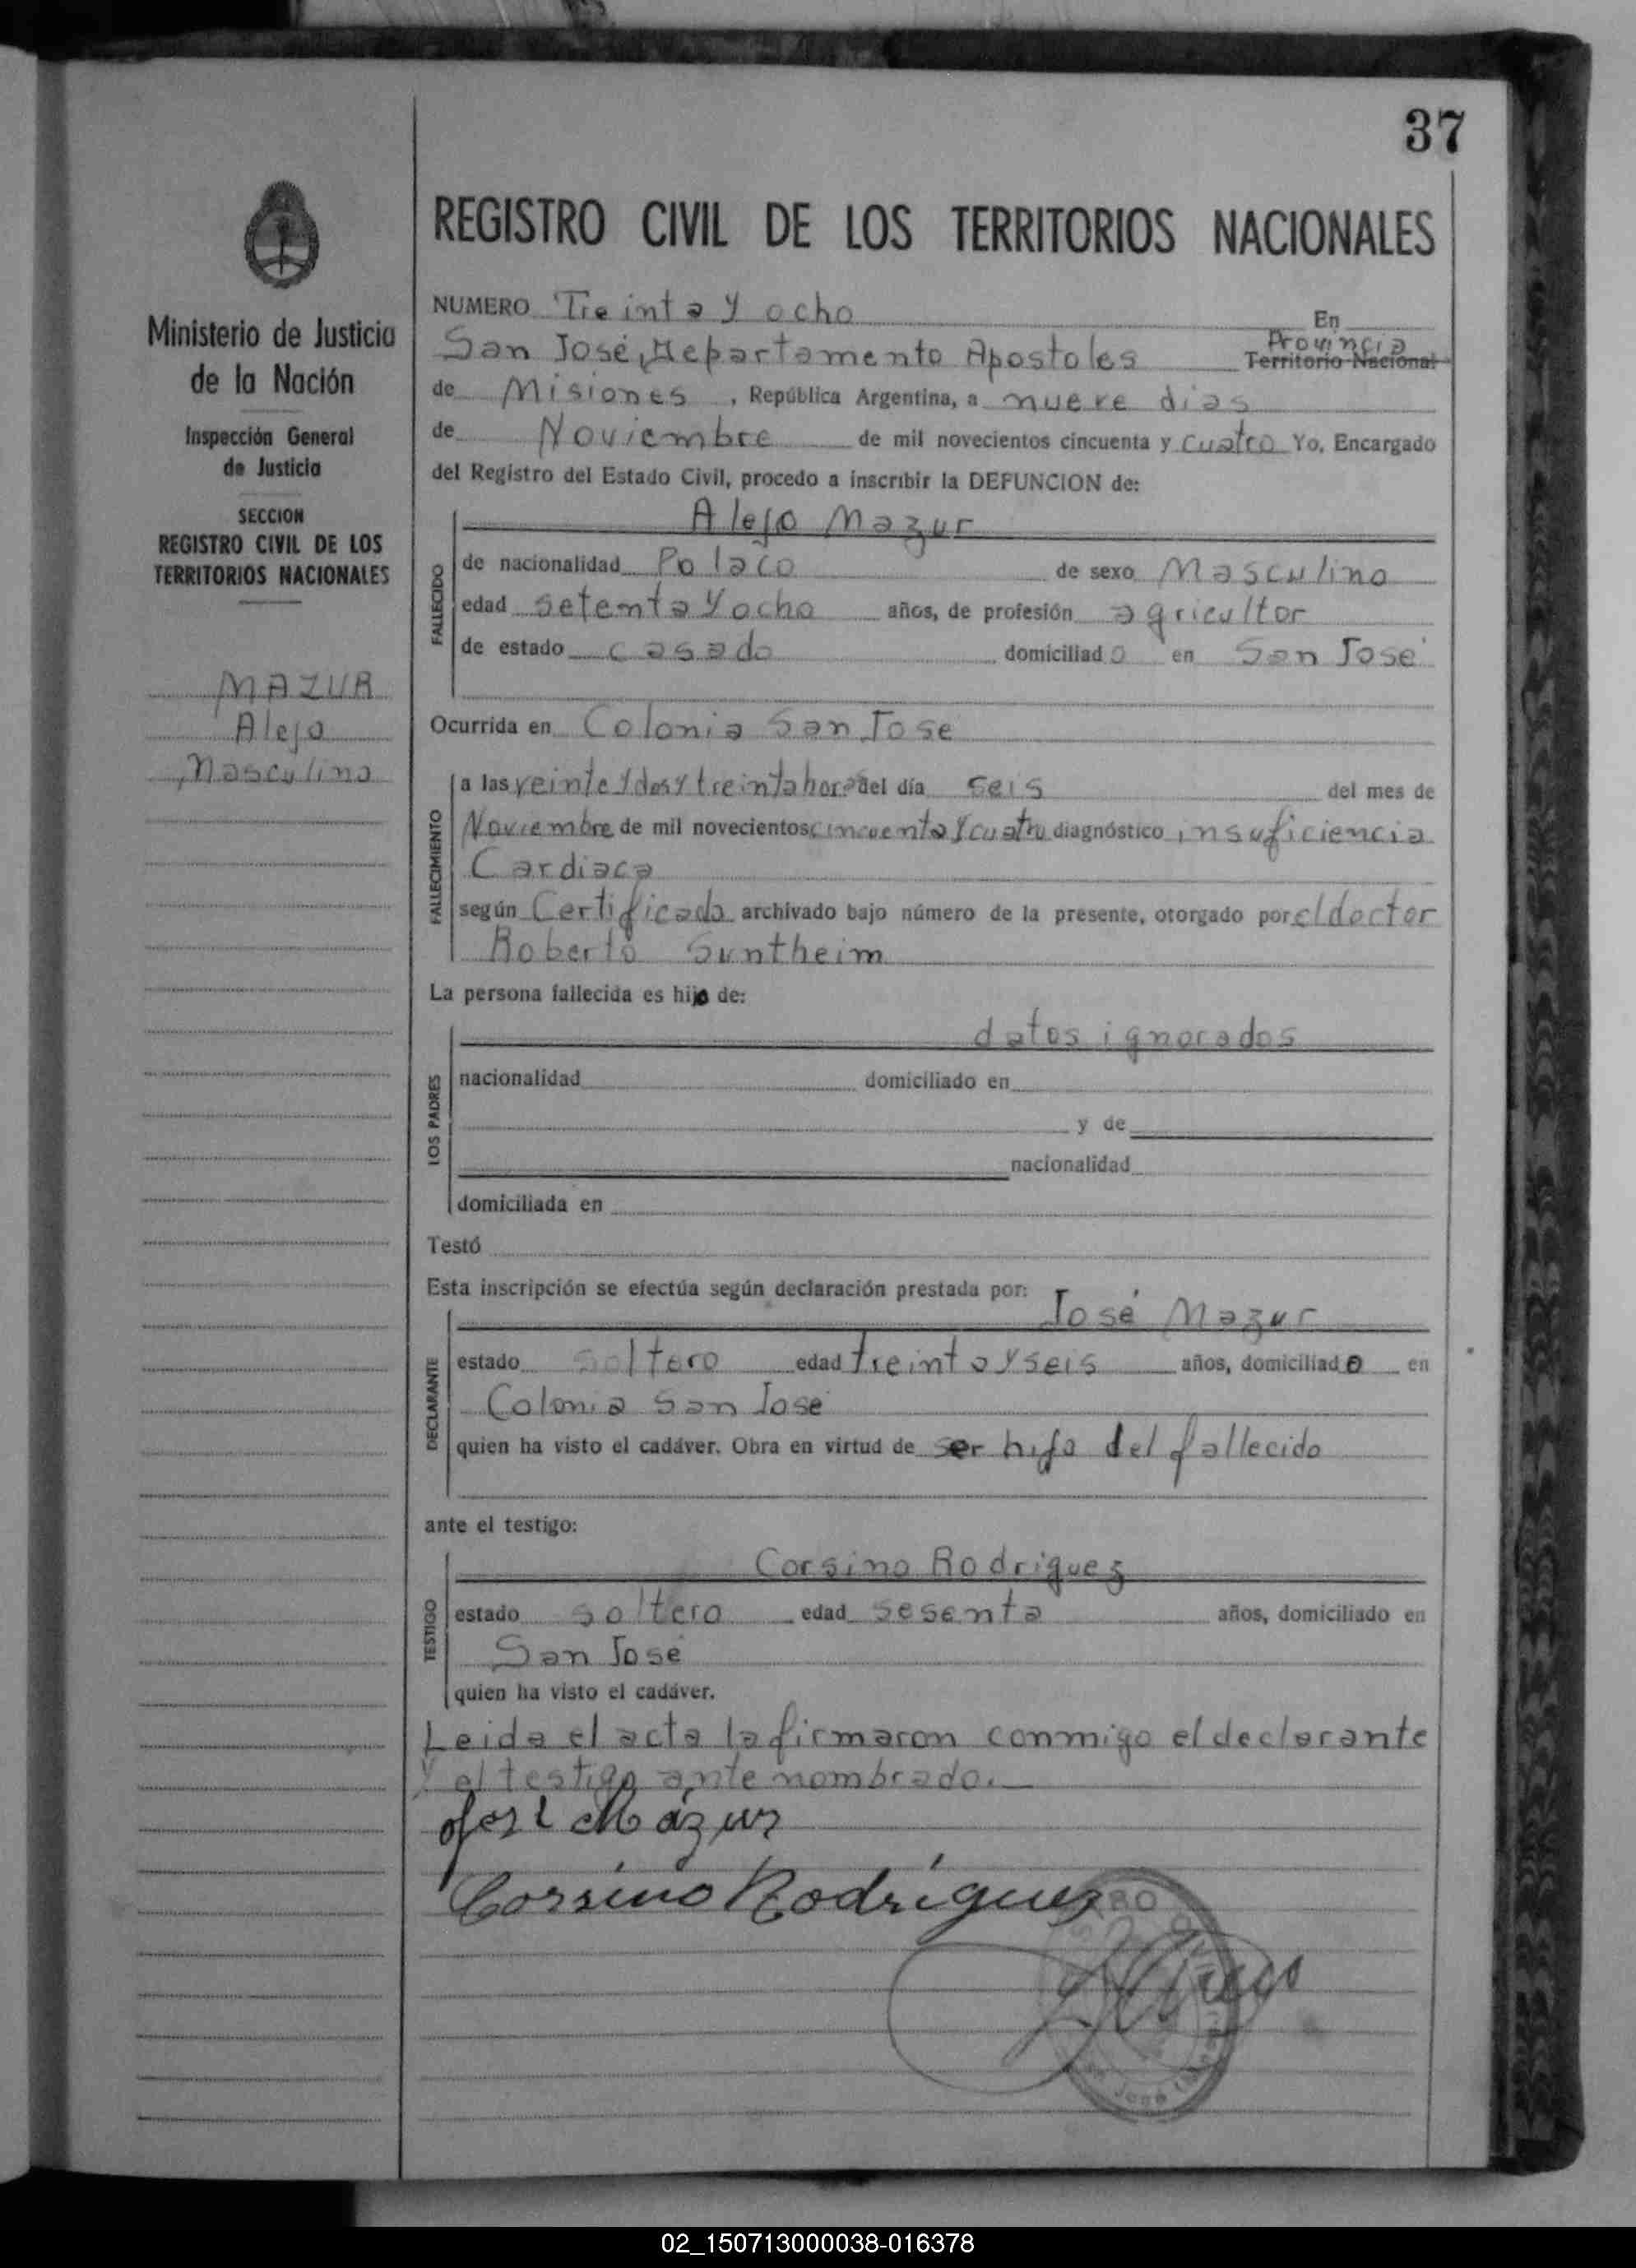 37
Ministerio de Justicia
de la Nación
Inspección General
de Justicia
SECCION
REGISTRO CIVIL DE LOS
TERRITORIOS NACIONALES
MAZUR
Alejo
Masculino
REGISTRO CIVIL DE LOS TERRITORIOS NACIONALES
NUMERO Treinta y ocho En
San José, Departamento Apostoles Provincia Territorio Nacional
de Misiones, República Argentina, a nueve dias
de Noviembre de mil novecientos cincuenta y cuatro Yo, Encargado
del Registro del Estado Civil, procedo a inscribir la DEFUNCION de:
FALLECIDO
Alejo Mazur
de nacionalidad Polaco de sexo Masculino
edad setenta y ocho años, de profesión agricultor
de estado casado domiciliado en San José
Ocurrida en Colonia San Jose
FALLECIMIENTO
a las veinte y dos y treinta horas del día seis del mes de
Noviembre de mil novecientos cincuenta y cuatro diagnóstico insuficiencia
Cardiaca
según Certificado archivado bajo número de la presente, otorgado por el doctor
Roberto Suntheim
La persona fallecida es hijo de:
LOS PADRES
datos ignorados
nacionalidad domiciliado en
y de
nacionalidad
domiciliada en
Testó
Esta inscripción se efectúa según declaración prestada por:
DECLARANTE
José Mazur
estado soltero edad treinta y seis años, domiciliado en
Colonia San Jose
quien ha visto el cadáver. Obra en virtud de ser hijo del fallecido
ante el testigo:
TESTIGO
Corsino Rodriguez
estado soltero edad sesenta años, domiciliado en
San José
quien ha visto el cadáver.
Leida el acta la firmaron conmigo el declarante
y el testigo ante nombrado.
José Mázur
Corsino Rodríguez
02_150713000038-016378